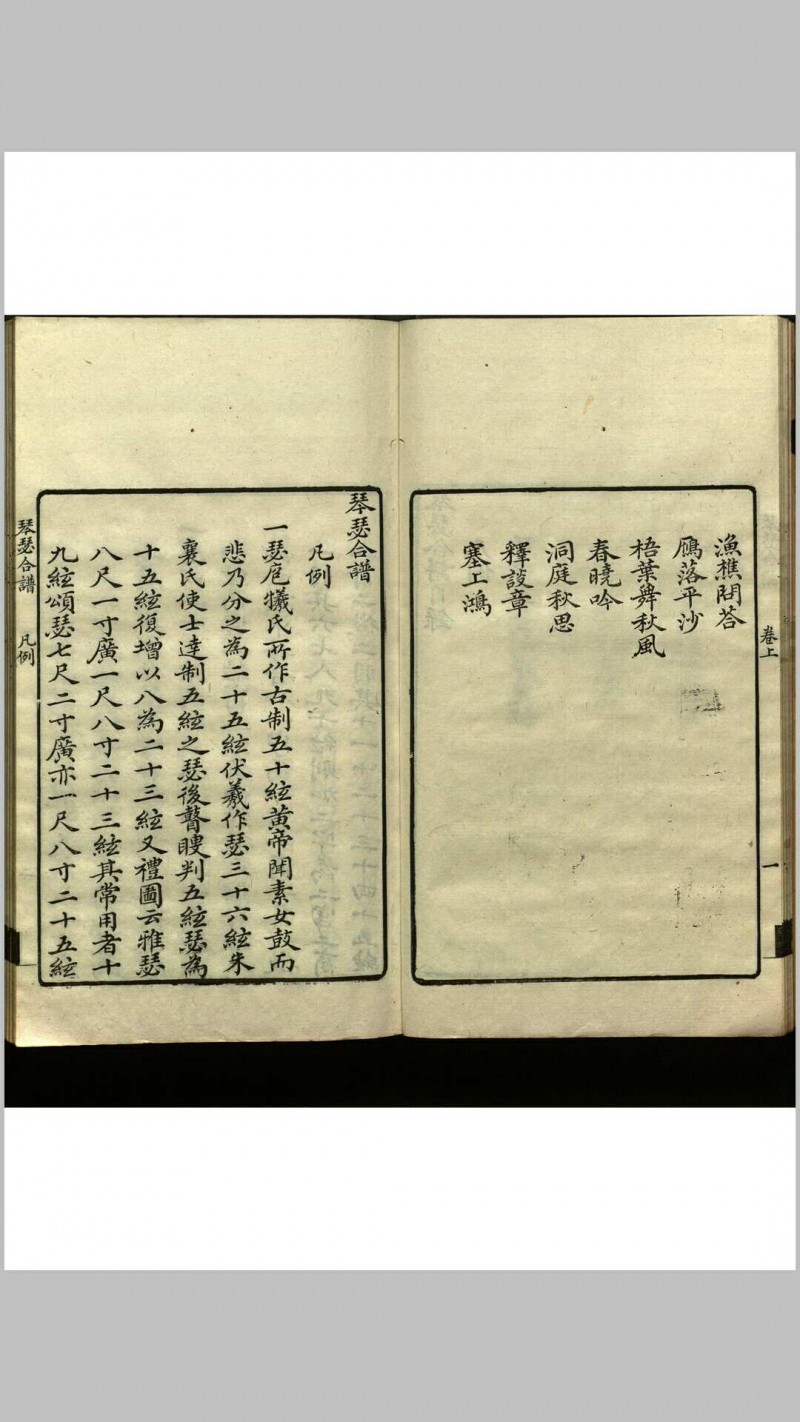 漁樵問荅
鴈落平沙
梧葉舞秋風
春曉吟
洞庭秋思
釋談章
塞上鴻
卷上
一
琴瑟合譜
凡例
一瑟庖犧氏所作古制五十絃黄帝聞素女鼓而
悲乃分之為二十五絃伏羲作瑟三十六絃朱
襄氏使士達制五絃之瑟後瞽瞍判五絃瑟為
十五絃復增以八為二十三絃又禮圖云雅瑟
八尺一寸廣一尺八寸二十三絃其常用者十
九絃頌瑟七尺二寸廣亦一尺八寸二十五絃
琴瑟合譜
凡例